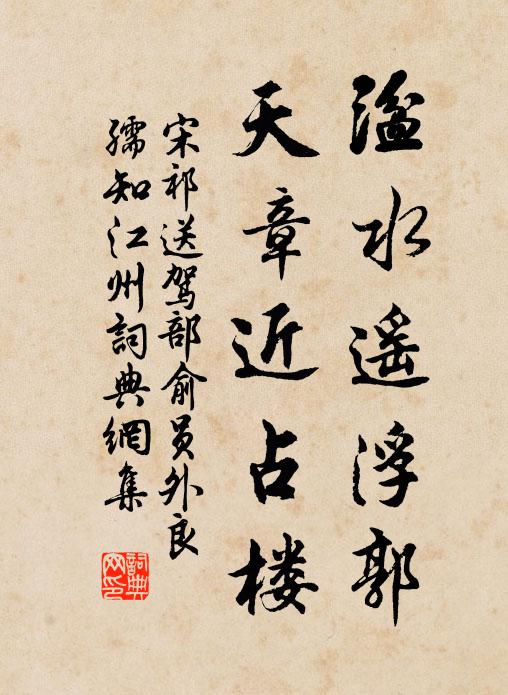 溢水遥浮郭
天章近占楼
宋祁送驾部俞员外良
孺知江州詞典網集
詞典
网印